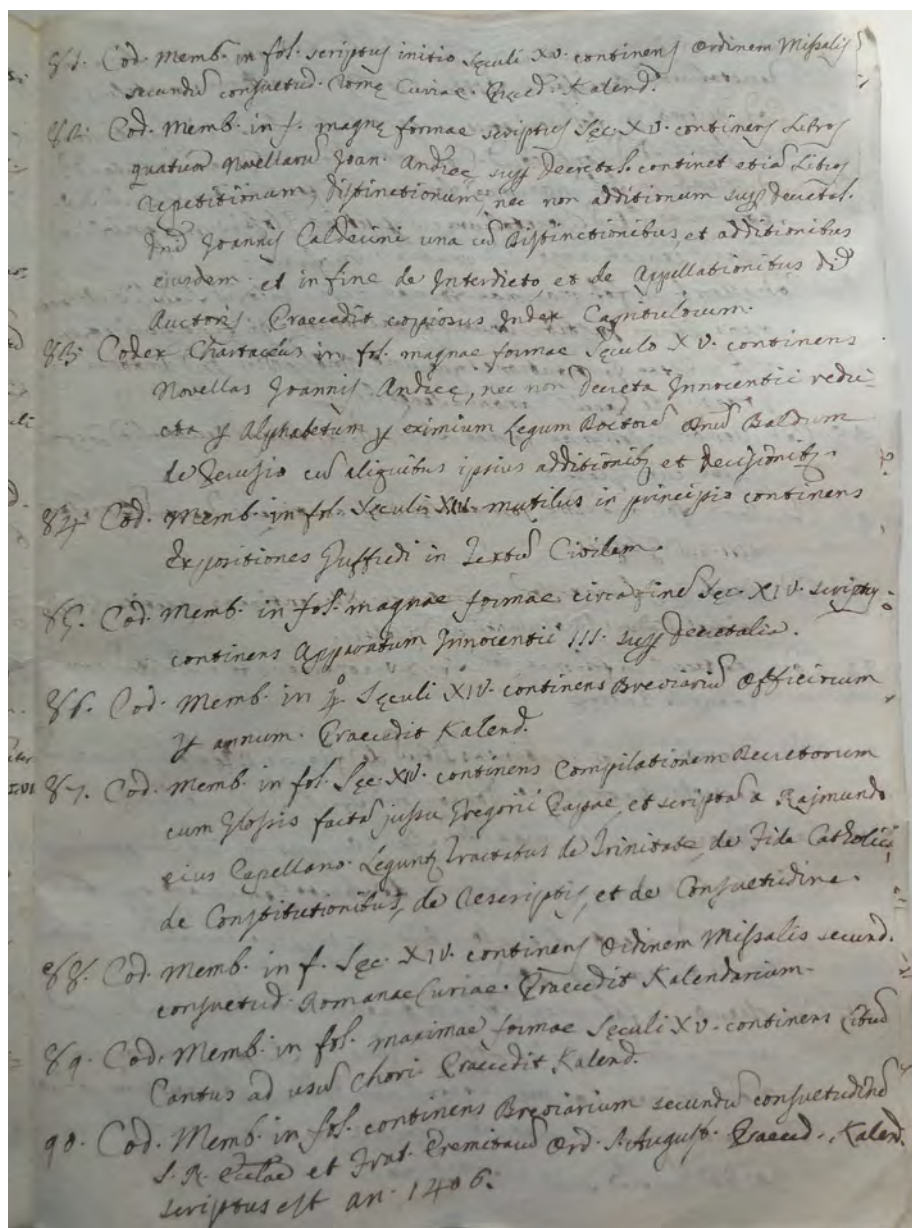 81. Cod. Memb. in fol. scriptus initio Sęculi XV. continens Ordinem Missalis
secundũ consuetud. Romę Curiae. Praeced. Kalend.
82. Cod. Memb. in f. magnę formae scriptus Sęc. XV. continens Libros
quatuor Novellarũ Joan. Andreę supp Decretal. continet etiã Libros
repetitionum, distinctionum, nec non additionum supp Decretal.
Dñi Joannis Calderini una cũ distinctionibus, et additionibus
eiusdem. et in fine de Interdicto, et de Appellationibus
Auctoris. Praecedit copiosus Index Capitulorum.
83. Codex Chartaceus in fol. magnae formae Sęculo XV. continens
Novellas Joannis Andreę, nec non Decreta Innocentii redu-
cta p Alphabetum p eximium Legum Doctorẽ Dnũ Baldum
de Perusio cũ aliquibus ipsius additionibꝫ et decisionibꝫ.
84. Cod. Memb. in fol. Sęculi XIV. mutilus in principio continens
Expositiones Juffredi in Textũ Civilem.
85. Cod. Memb. in fol. magnae formae circa finẽ Sęc. XIV. scriptus
continens Apparatum Innocentii III. supp Decretalia.
86. Cod. Memb. in 4º Sęculi XIV. continens Breviariũ Officiorum
p annum. Praecedit Kalend.
87. Cod. Memb. in fol. Sęc. XIV. continens Compilationem Decretorum
cum Glossis factã jussu Gregorii Papae, et scriptã a Rajmundo
eius Capellano. Legunt Tractatus de Trinitate, de Fide Catholica,
de Constitutionibus, de Rescriptis, et de Consuetudine.
88. Cod. Memb. in f. Sęc. XIV. continens Ordinem Missalis secund.
consuetud. Romanae Curiae. Praecedit Kalendarium.
89. Cod. Memb. in fol. maximae formae Sęculi XV. continens Librũ
Cantus ad usũ Chori. Praecedit Kalend.
90. Cod. Memb. in fol. continens Breviarium secundũ consuetudinẽ
S. R. Ecclae et Frat. Eremitarũ Ord. S. August. Praeced. Kalend.
scriptus est an. 1406.